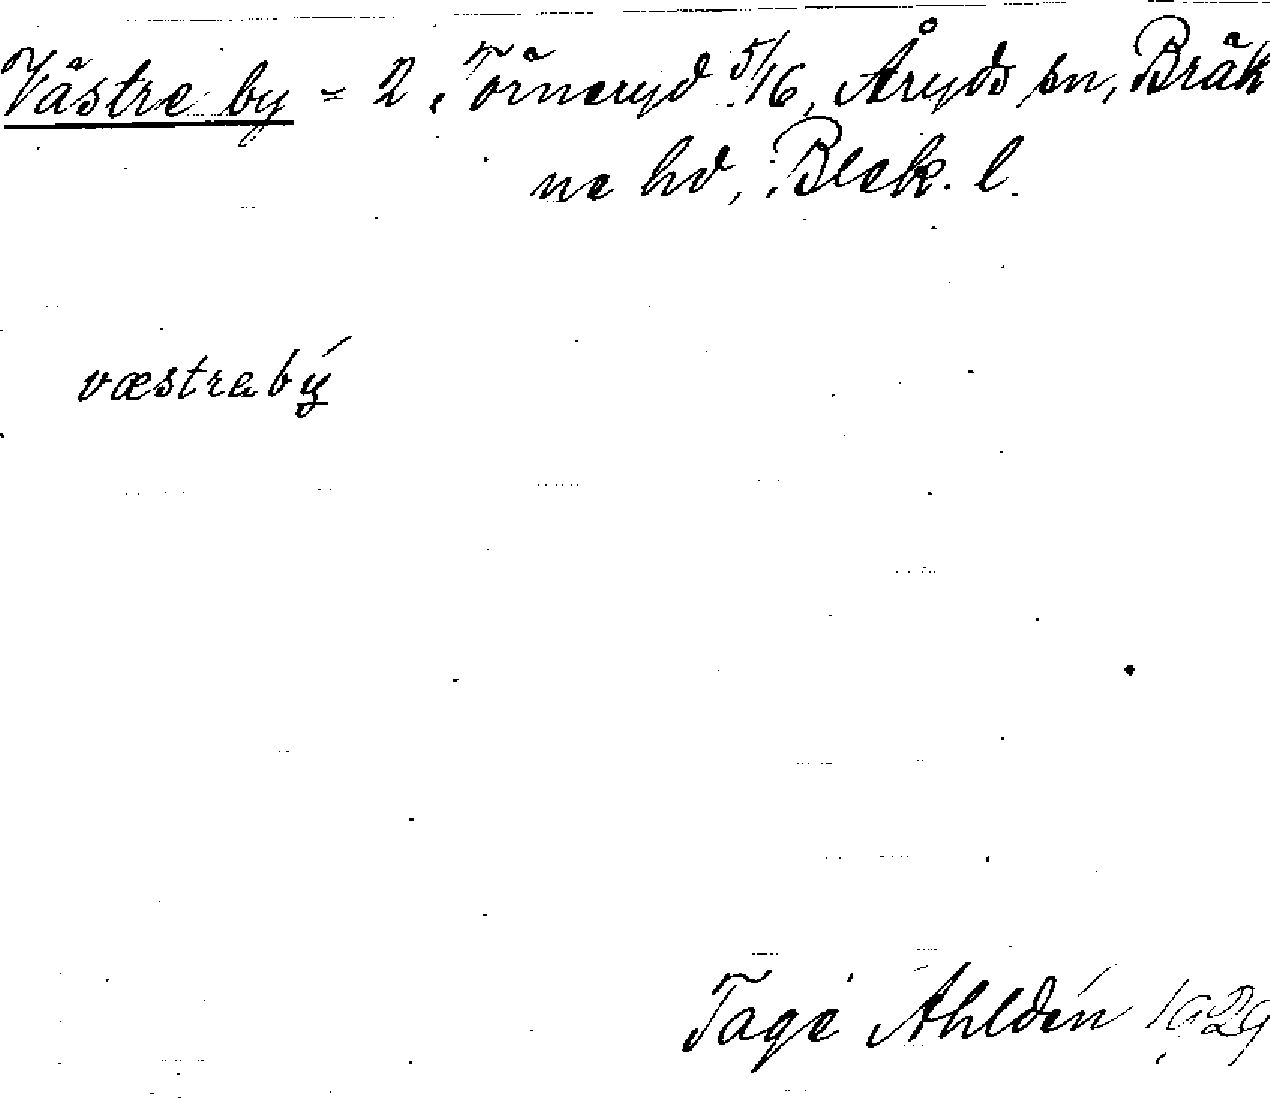 Västra by = 2, Törneryd 5/16, Åryds sn, Bräk
ne hd, Blek. l.
væstrabý
Tage Ahldén 1929